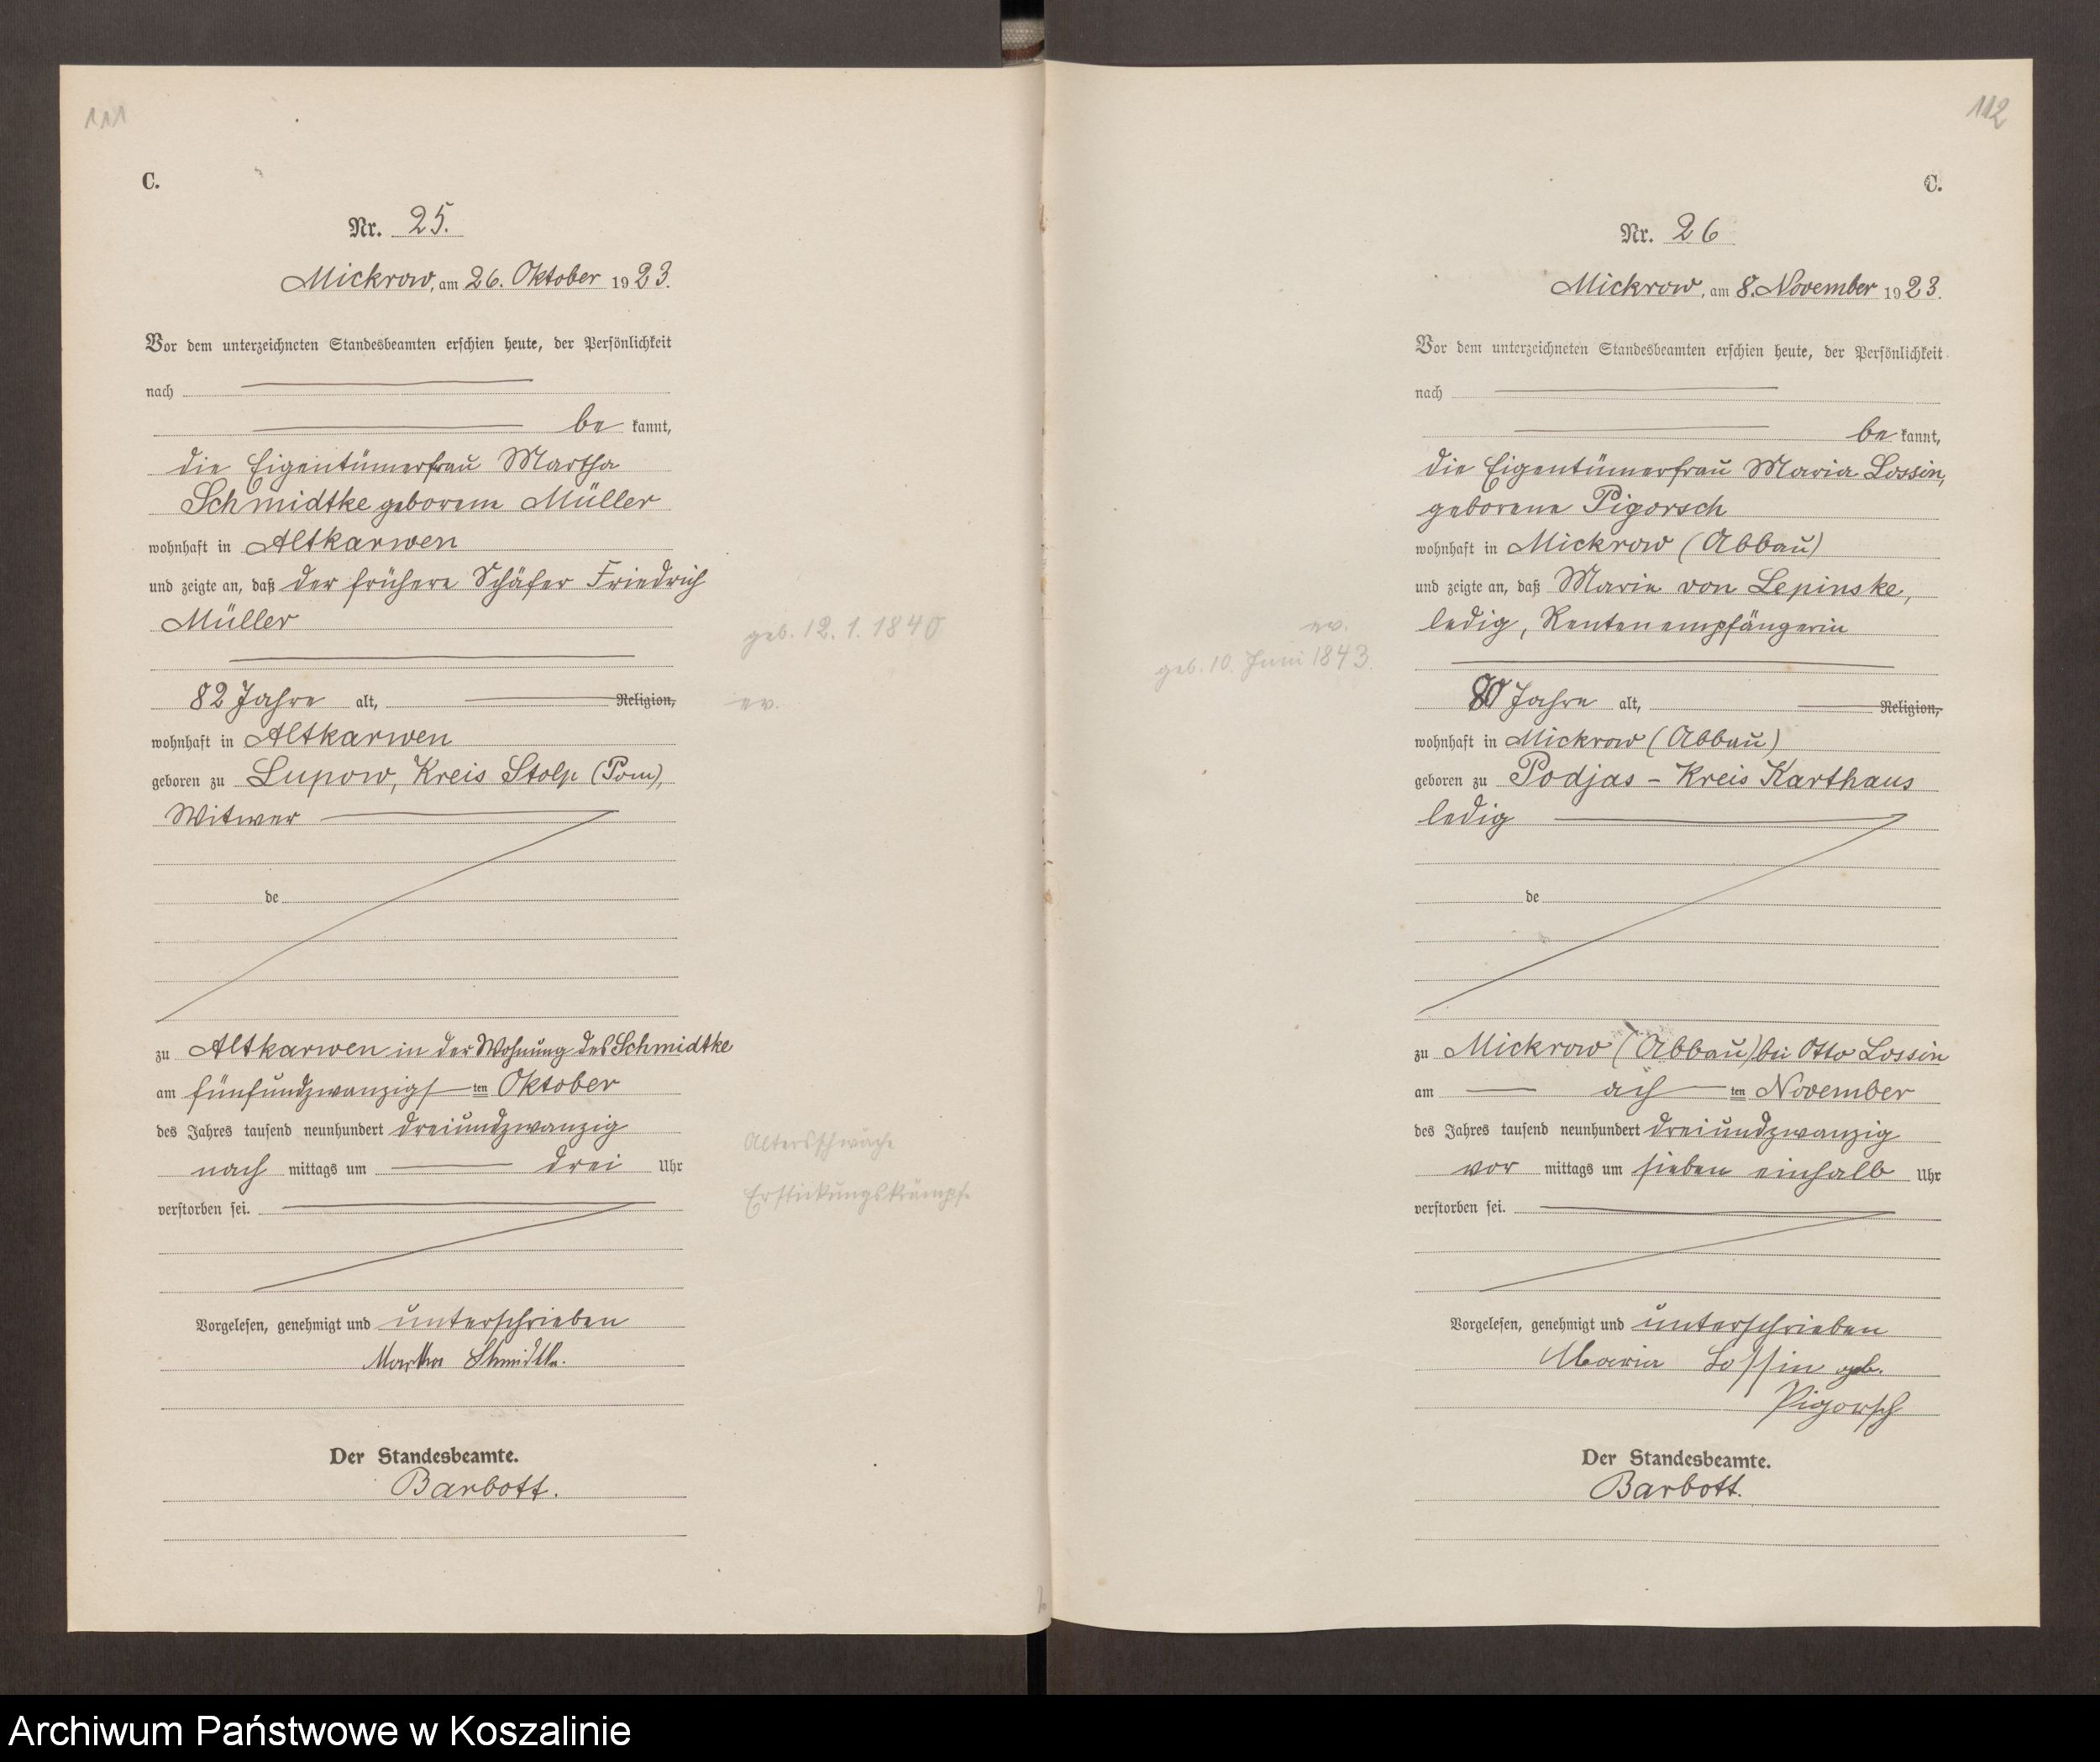 111
C.
Nr. 25.
Mickrow, am 26. Oktober 1923.
Vor dem unterzeichneten Standesbeamten erschien heute, der Persönlichkeit
nach
be kannt,
die Eigentümerfrau Martha
Schmidtke geborene Müller
wohnhaft in Altkarwen
und zeigte an, daß der frühere Schäfer Friedrich
Müller
geb. 12. 1. 1840
82 Jahre alt, Religion,
ev.
wohnhaft in Altkarwen
geboren zu Lupow, Kreis Stolp (Pom),
Witwer
de
zu Altkarwen in der Wohnung des Schmidtke
am fünfundzwanzigs ten Oktober
des Jahres tausend neunhundert dreiundzwanzig
Altersschwäche
nach mittags um drei Uhr
Erstickungskrämpfe
verstorben sei.
Vorgelesen, genehmigt und unterschrieben
Martha Schmidtke.
Der Standesbeamte.
Barbott.
112
C.
Nr. 26
Mickrow, am 8. November 1923.
Vor dem unterzeichneten Standesbeamten erschien heute, der Persönlichkeit
nach
be kannt,
die Eigentümerfrau Maria Lossin,
geborene Pigorsch
wohnhaft in Mickrow (Abbau)
und zeigte an, daß Marie von Lepinske,
ev.
ledig, Rentenempfängerin
geb. 10. Juni 1843.
80 Jahre alt, Religion,
wohnhaft in Mickrow (Abbau)
geboren zu Podjas - Kreis Karthaus
ledig
de
zu Mickrow (Abbau) bei Otto Lossin
am ach ten November
des Jahres tausend neunhundert dreiundzwanzig
vor mittags um sieben einhalb Uhr
verstorben sei.
Vorgelesen, genehmigt und unterschrieben
Maria Lossin geb.
Pigorsch
Der Standesbeamte.
Barbott.
Archiwum Państwowe w Koszalinie